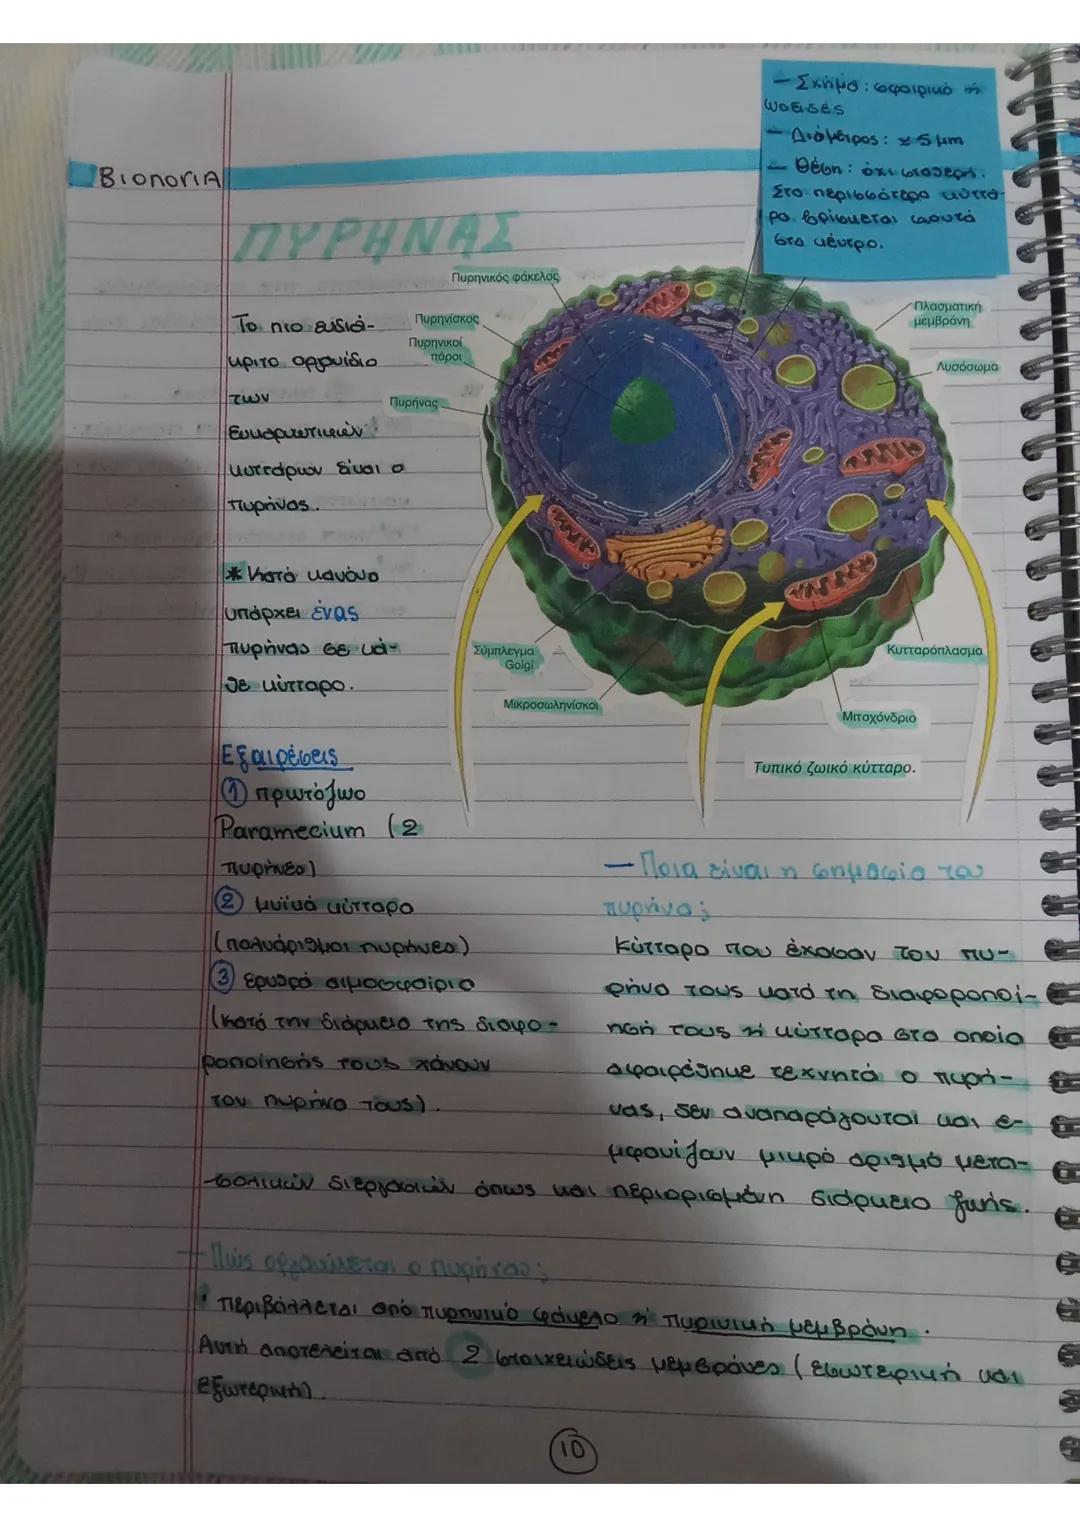 - Σχήμα: σφαιρικό ή
ωοειδές
- Διάμετρος: ≈ 5 μm
- Θέση: όχι σταθερή.
Στα περισσότερα κύττα-
ρα βρίσκεται κοντά
στο κέντρο.
ΒΙΟΛΟΓΙΑ
ΠΥΡΗΝΑΣ
Πυρηνικός φάκελος
Πυρηνίσκος
Πυρηνικοί
πόροι
Πυρήνας
Πλασματική
μεμβράνη
Λυσόσωμα
Σύμπλεγμα
Golgi
Μικροσωληνίσκοι
Κυτταρόπλασμα
Μιτοχόνδριο
Τυπικό ζωικό κύτταρο.
Το πιο ευδιά-
κριτο οργανίδιο
των
Ευκαρυωτικών
κυττάρων είναι ο
πυρήνας.
* Κατά κανόνα
υπάρχει ένας
πυρήνας σε κά-
θε κύτταρο.
Εξαιρέσεις
① πρωτόζωο
Paramecium (2
πυρήνες)
② μυϊκά κύτταρα
(πολυάριθμοι πυρήνες)
③ ερυθρά αιμοσφαίρια
(κατά την διάρκεια της διαφο-
ροποίησής τους χάνουν
τον πυρήνα τους).
- Ποια είναι η σημασία του
πυρήνα;
Κύτταρα που έχασαν τον πυ-
ρήνα τους κατά τη διαφοροποί-
ησή τους ή κύτταρα στα οποία
αφαιρέθηκε τεχνητά ο πυρή-
νας, δεν αναπαράγονται και ε-
μφανίζουν μικρό αριθμό μετα-
βολικών διεργασιών όπως και περιορισμένη διάρκεια ζωής.
- Πώς οργανώνεται ο πυρήνας;
• Περιβάλλεται από πυρηνικό φάκελο ή πυρινική μεμβράνη.
Αυτή αποτελείται από 2 στοιχειώδεις μεμβράνες (εσωτερική και
εξωτερική).
10